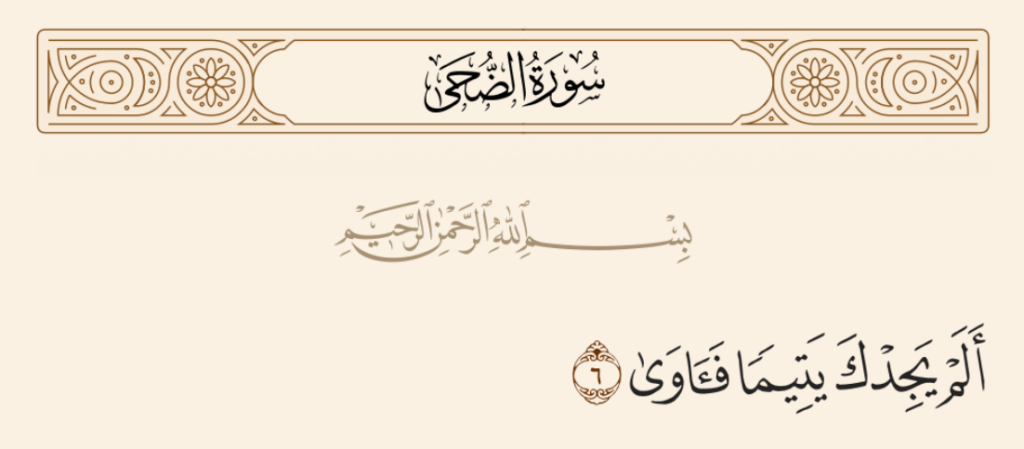 سُورَةُ الضُّحَى
بِسْمِ اللَّهِ الرَّحْمَٰنِ الرَّحِيمِ
أَلَمْ يَجِدْكَ يَتِيمًا فَـَٔاوَىٰ ٦